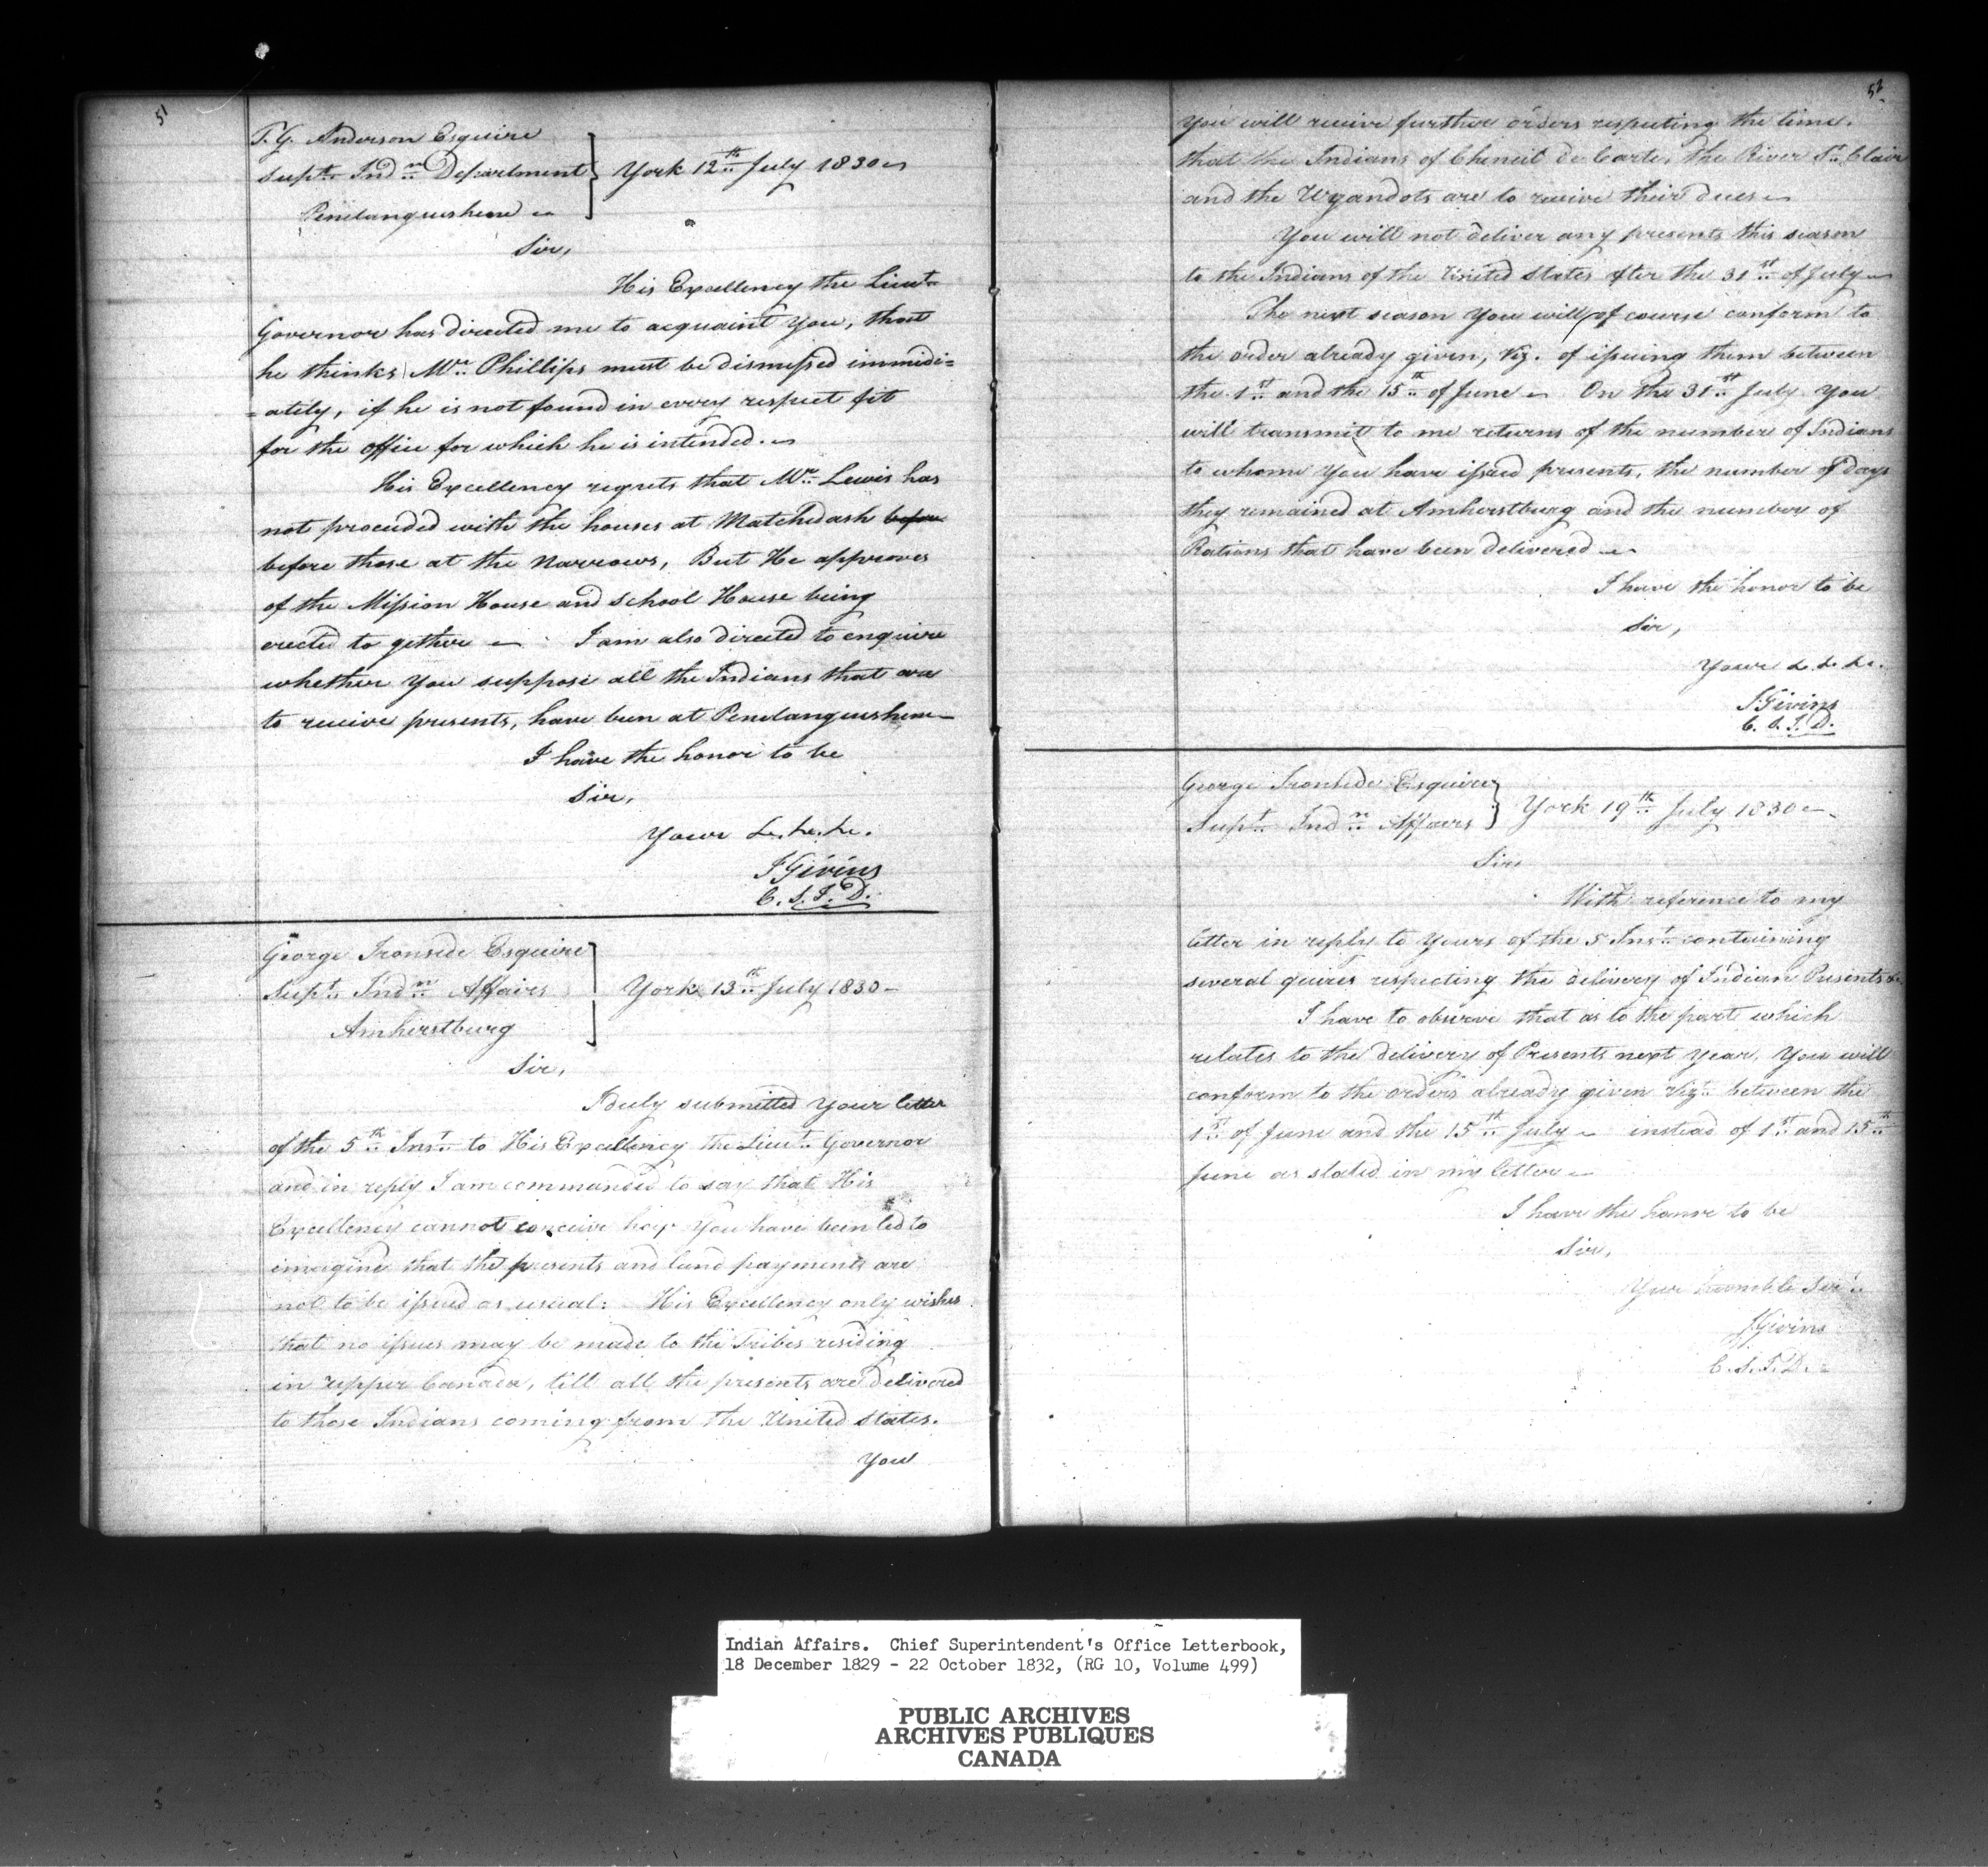 51
T. G. Anderson Esquire
Supt. Indn. Department
Penetanguishene
York 12th July 1830
Sir,
His Excellency the Lieut
Governor has directed me to acquaint You, that
he thinks Mr. Phillips must be dismissed immidi=
=ately, if he is not found in every respect fit
for the office for which he is intended.
His Excellency regrets that Mr. Lewis has
not proceeded with the houses at Matchedash before
before those at the Narrows, But He approves
of the Mission House and School House being
erected to gether I am also directed to enquire
whether You suppose all the Indians that are
to receive presents, have been at Penetanguishene
I have the honor to be
Sir,
Your &c. &c. &c.
J Givins
C. S. I. D.
George Ironside Esquire
Supt. Indn. Affairs
Amherstburg
York 13th July 1830
Sir,
I duly submitted Your letter
of the 5th Inst. to His Excellency the Lieut. Governor
and in reply I am commanded to say that His
Excellency cannot conceive how You have been led to
imagine that the presents and land payments are
not to be issued as usual: His Excellency only wishes
that no issues may be made to the Tribes residing
in Upper Canada, till all the presents are delivered
to those Indians coming from the United States.
You
52
You will receive further orders respecting the time.
that the Indians of Cheneil de Carte, the River St. Clair
and the Wyandots are to receive their dues
You will not deliver any presents this season
to the Indians of the United States after the 31st of July
The next season You will of course conform to
the order already given, Viz. of issuing them between
the 1st and the 15th of June On the 31st July You
will transmit to me returns of the number of Indians
to whome You have issued presents, the number of days
they remained at Amherstburg and the number of
Rations that have been delivered
I have the honor to be
Sir,
Your &. &. &c.
J Givins
C. S. I. D.
George Ironside Esquire
Supt. Indn. Affairs
York 19th July 1830
Sir,
With reference to my
letter in reply to Yours of the 5 Inst. containing
several quires respecting the delivery of Indian Presents &c
I have to observe that as to the part which
relates to the delivery of Presents next Year, You will
conform to the orders already given Vizt. between the
1st of June and the 15th July instead of 1st and 15th
June as stated in my letter
I have the honor to be
Sir,
Your humble Servt.
J Givins
C. S. I. D.
Indian Affairs. Chief Superintendent's Office Letterbook,
18 December 1829 - 22 October 1832, (RG 10, Volume 499)
PUBLIC ARCHIVES
ARCHIVES PUBLIQUES
CANADA